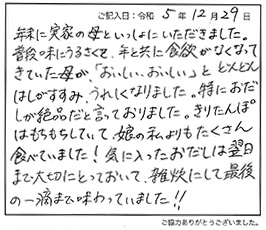 ご記入日：令和 5年12月29日
年末に実家の母といっしょにいただきました。
普段味にうるさくて、年と共に食欲がなくなって
きていた母が、「おいしい、おいしい」と どんどん
はしがすすみ、うれしくなりました。特におだ
しが絶品だと言っておりました。きりたんぽ
はもちもちしていて、娘の私よりもたくさん
食べていました！気に入ったおだしは翌日
まで大切にとっておいて、雑炊にして最後
の一滴まで味わっていました!!
ご協力ありがとうございました。